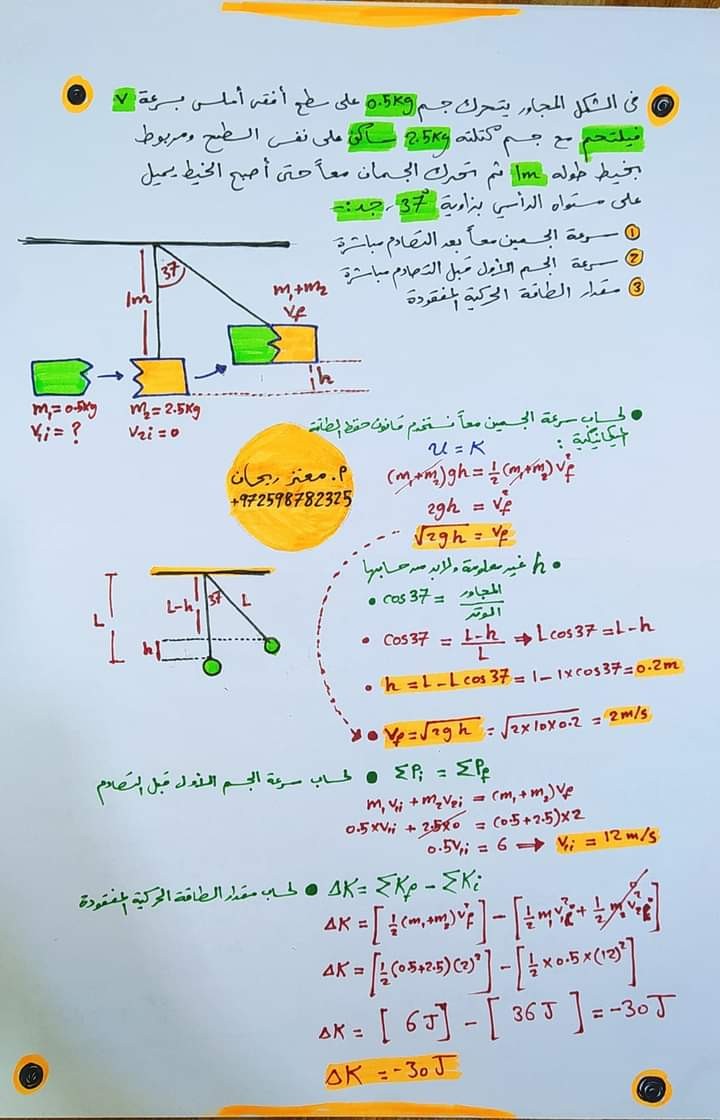 في الشكل المجاور يتحرك جسم 0.5Kg على سطح أفقي أملس بسرعة v
فيلتحم مع جسم كتلته 2.5Kg ساكن على نفس السطح ومربوط
بخيط طوله 1m ثم تحرك الجسمان معاً حتى أصبح الخيط يميل
على مستواه الرأسي بزاوية 37° ، جد :-
① سرعة الجسمين معاً بعد التصادم مباشرة
② سرعة الجسم الأول قبل التصادم مباشرة
③ مقدار الطاقة الحركية المفقودة
37
1m
m₁+m₂
vf
h
m₁=0.5Kg
v₁i = ?
m₂=2.5Kg
v₂i=0
• لحساب سرعة الجسمين معاً نستخدم قانون حفظ الطاقة
الميكانيكية :
U = K
(m₁+m₂)gh = ½ (m₁+m₂) vf²
2gh = vf²
√2gh = vf
م. معتز ريحان
+972598782325
• h غير معلومة ولابد من حسابها
• cos37 = المجاور / الوتر
• cos37 = L-h / L ⇒ Lcos37 = L-h
• h = L - L cos37 = 1 - 1×cos37 = 0.2m
• vf = √2gh = √2×10×0.2 = 2m/s
L
L-h
37
L
h
لحساب سرعة الجسم الأول قبل التصادم • ΣPi = ΣPf
m₁v₁i + m₂v₂i = (m₁+m₂)vf
0.5×v₁i + 2.5×0 = (0.5+2.5)×2
0.5v₁i = 6 → v₁i = 12m/s
لحساب مقدار الطاقة الحركية المفقودة • ΔK = ΣKf - ΣKi
ΔK = [½(m₁+m₂)vf²] - [½m₁v₁i² + ½m₂v₂i²]
ΔK = [½(0.5+2.5)(2)²] - [½×0.5×(12)²]
ΔK = [6J] - [36J] = -30J
ΔK = -30J